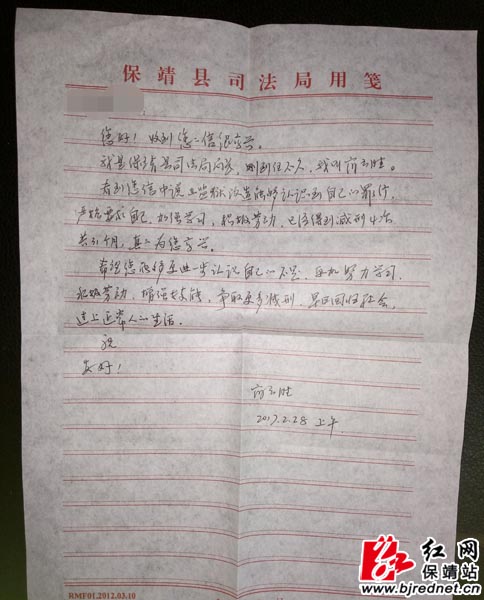 保靖县司法局用笺
您好！收到您的信很高兴。
我是保靖县司法局局长，刚到任不久，我叫
看到您信中说在监狱改造能够认识到自己的罪行，
严格要求自己，加强学习，积极劳动，已经得到减刑4次
共31个月，真的为您高兴。
希望您能够更进一步认识自己的不足，努力学习，
积极劳动，增强技能，争取更多减刑，早日回归社会，
过上正常人的生活。
祝
安好！
2017.2.28 上午
RMF01.2012.03.10
红网
保靖站
www.bjrednet.cn